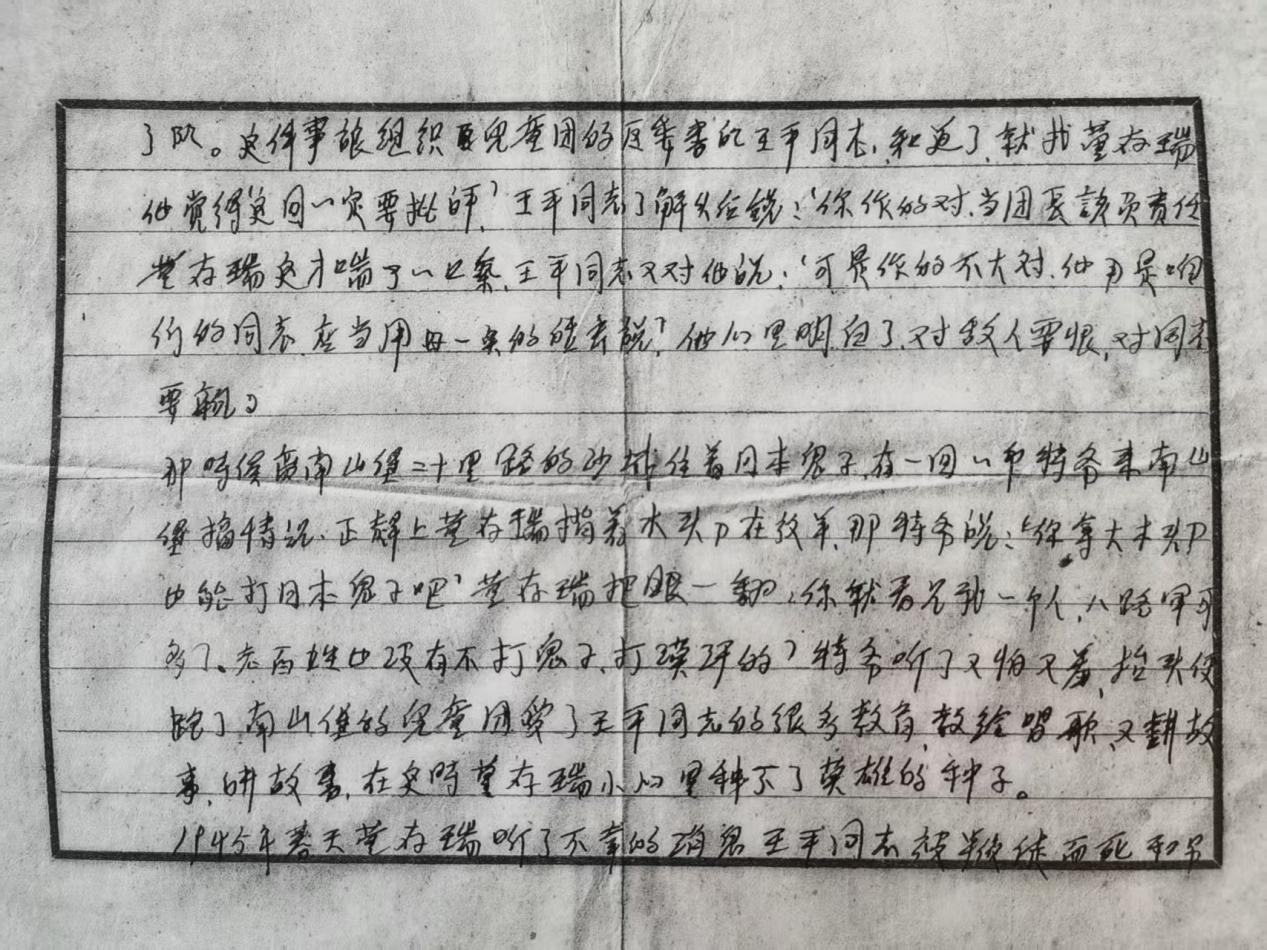 了队。这件事被组织儿童团的区委书记王平同志,知道了,就找董存瑞
他觉得这回一定要批评,王平同志了解以后说:“你作的对,当团长該负责任
董存瑞这才喘了一口气,王平同志又对他说:“可是你的不大对,他乃是咱
们的同志,应当用母一条的话去说”他心里明白了,对敌人要恨,对同志
要親。
那時侯离南山堡二十里路的沙城住着日本鬼子,有一回一个特务来南山
堡搞情况,正好上董存瑞揹着木头刀在放羊,那特务说:“你拿大木头刀
也能打日本鬼子吧”董存瑞把眼一翻,你就看见我一个人,八路军可
多了。老百姓也没有不打鬼子,打漢奸的”特务听了又怕又羞,抬头便
跑了南山堡的兒童团受了王平同志的很多教育,教给唱歌,又
事,讲故事,在这時董存瑞小心里种下了英雄的种子。
1945年春天董存瑞听了不幸的消息王平同志被叛徒而死